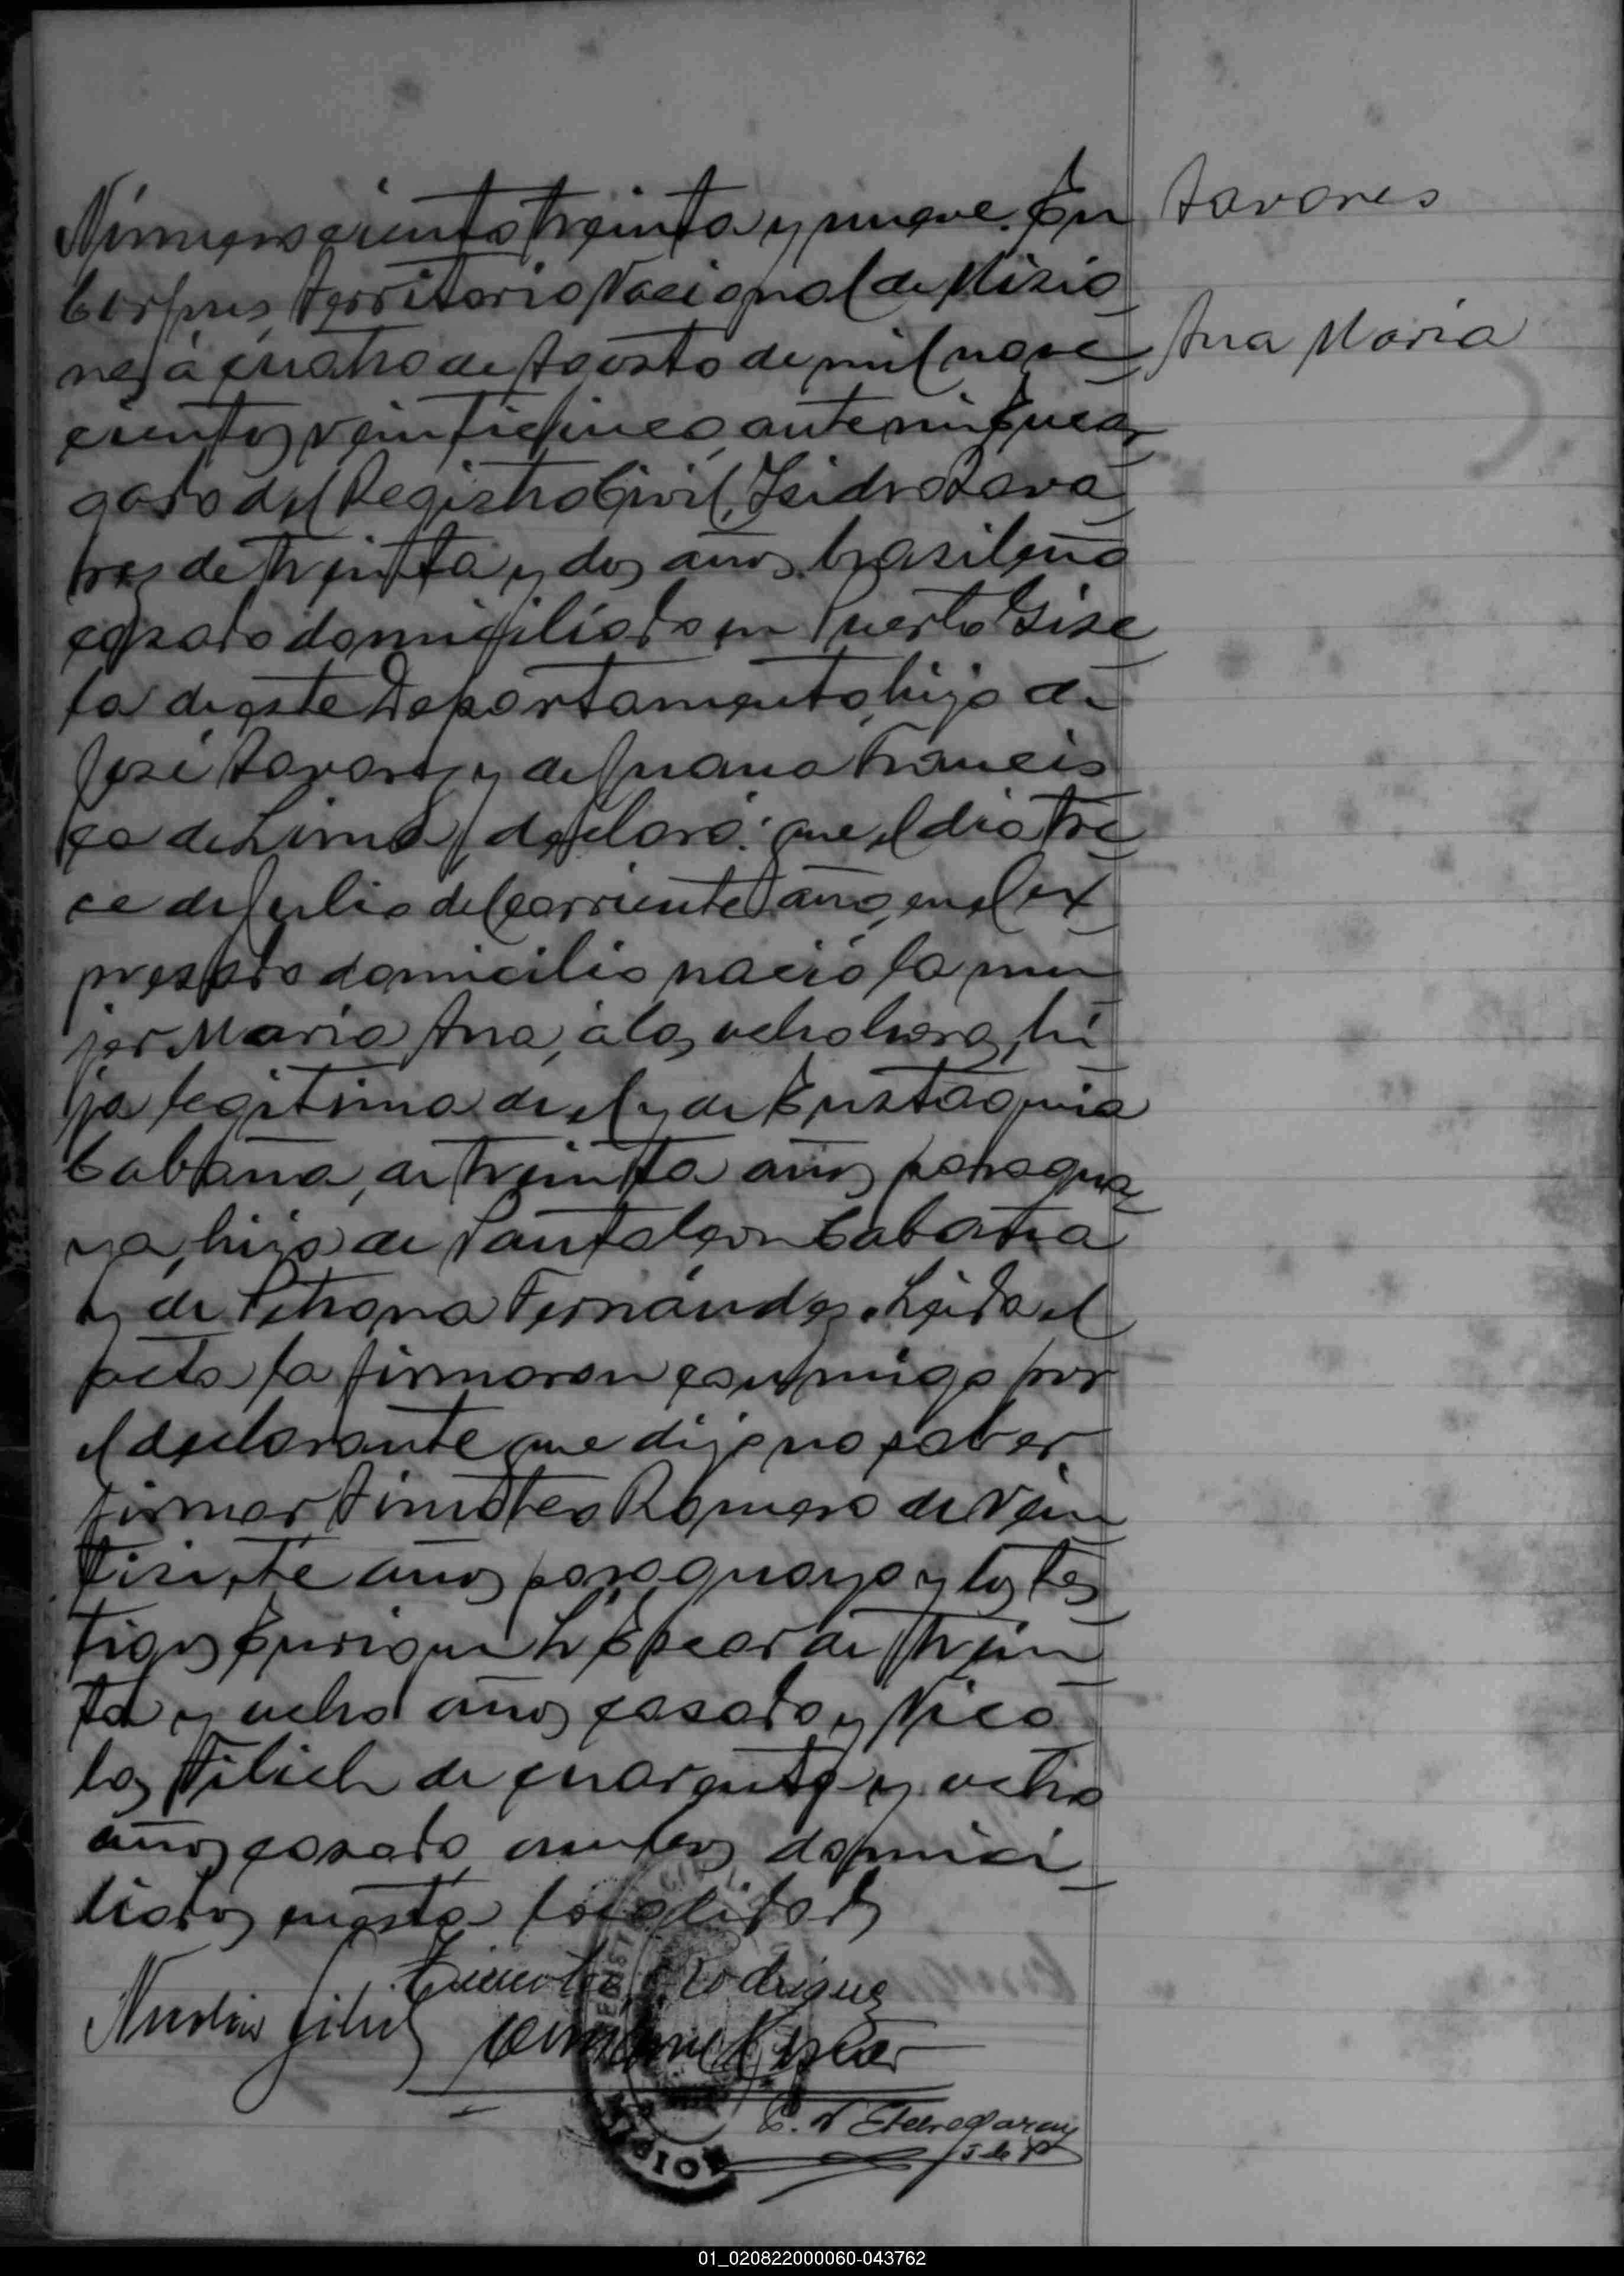 Número ciento treinta y nueve. En
Corpus, Territorio Nacional de Misio
nes á cuatro de Agosto de mil nove
cientos veinticinco, ante mi Encar
gado del Registro Civil, Isidro Tava
res de treinta y dos años, brasileño
casado domiciliado en Puerto Gise
la de este Departamento, hijo de
José Tavares y de Juana Francis
ca de Lima, declaró: que el dia tre
ce de Julio del corriente año, en el ex
presado domicilio nació la mu
jer Maria Ana, á las ocho horas, hi
ja legitima de el y de Eustaquia
Cabaña, de treinta años paragua
ya, hija de Pantaleon Cabaña
y de Petrona Fernández. Leida el
acta la firmaron conmigo por
el declarante que dijo no saber
firmar Timoteo Romero de vein
tisiete años paraguayo y los tes
tigos Enrique L. de trein
ta y ocho años casado y Nico
las Filich de cuarenta y ocho
años casado ambos domici
liados en esta localidad
Rodriguez
E. N. Etchegaray
J de P
MISION
Tavares
Ana Maria
01_020822000060-043762